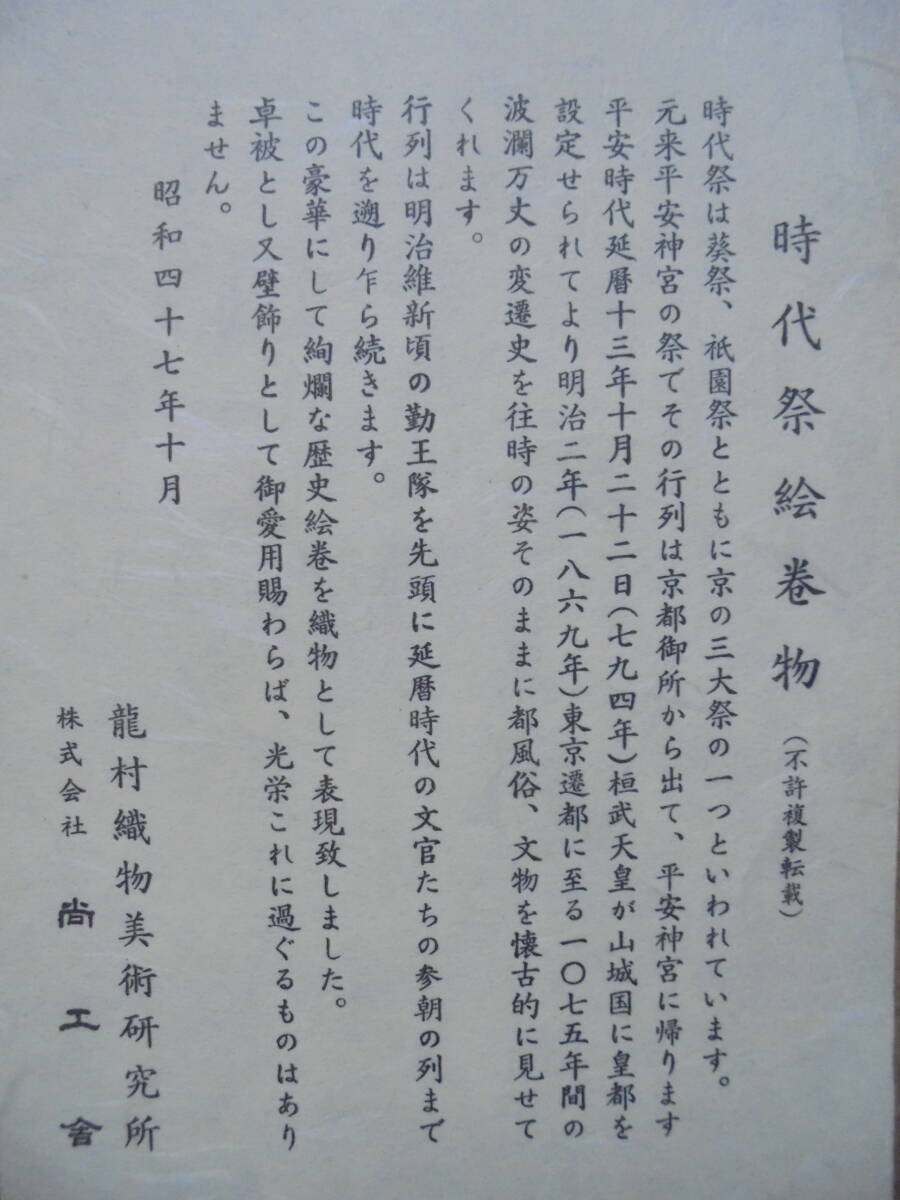 時代祭絵巻物(不許複製転載)
時代祭は葵祭、祇園祭とともに京の三大祭の一つといわれています。
元来平安神宮の祭でその行列は京都御所から出て、平安神宮に帰ります
平安時代延暦十三年十月二十二日(七九四年)桓武天皇が山城国に皇都を
設定せられてより明治二年(一八六九年)東京遷都に至る一〇七五年間の
波瀾万丈の変遷史を往時の姿そのままに都風俗、文物を懐古的に見せて
くれます。
行列は明治維新頃の勤王隊を先頭に延暦時代の文官たちの参朝の列まで
時代を遡り乍ら続きます。
この豪華にして絢爛な歴史絵巻を織物として表現致しました。
卓被とし又壁飾りとして御愛用賜わらば、光栄これに過ぐるものはあり
ません。
昭和四十七年十月
龍村織物美術研究所
株式会社 尚工舎